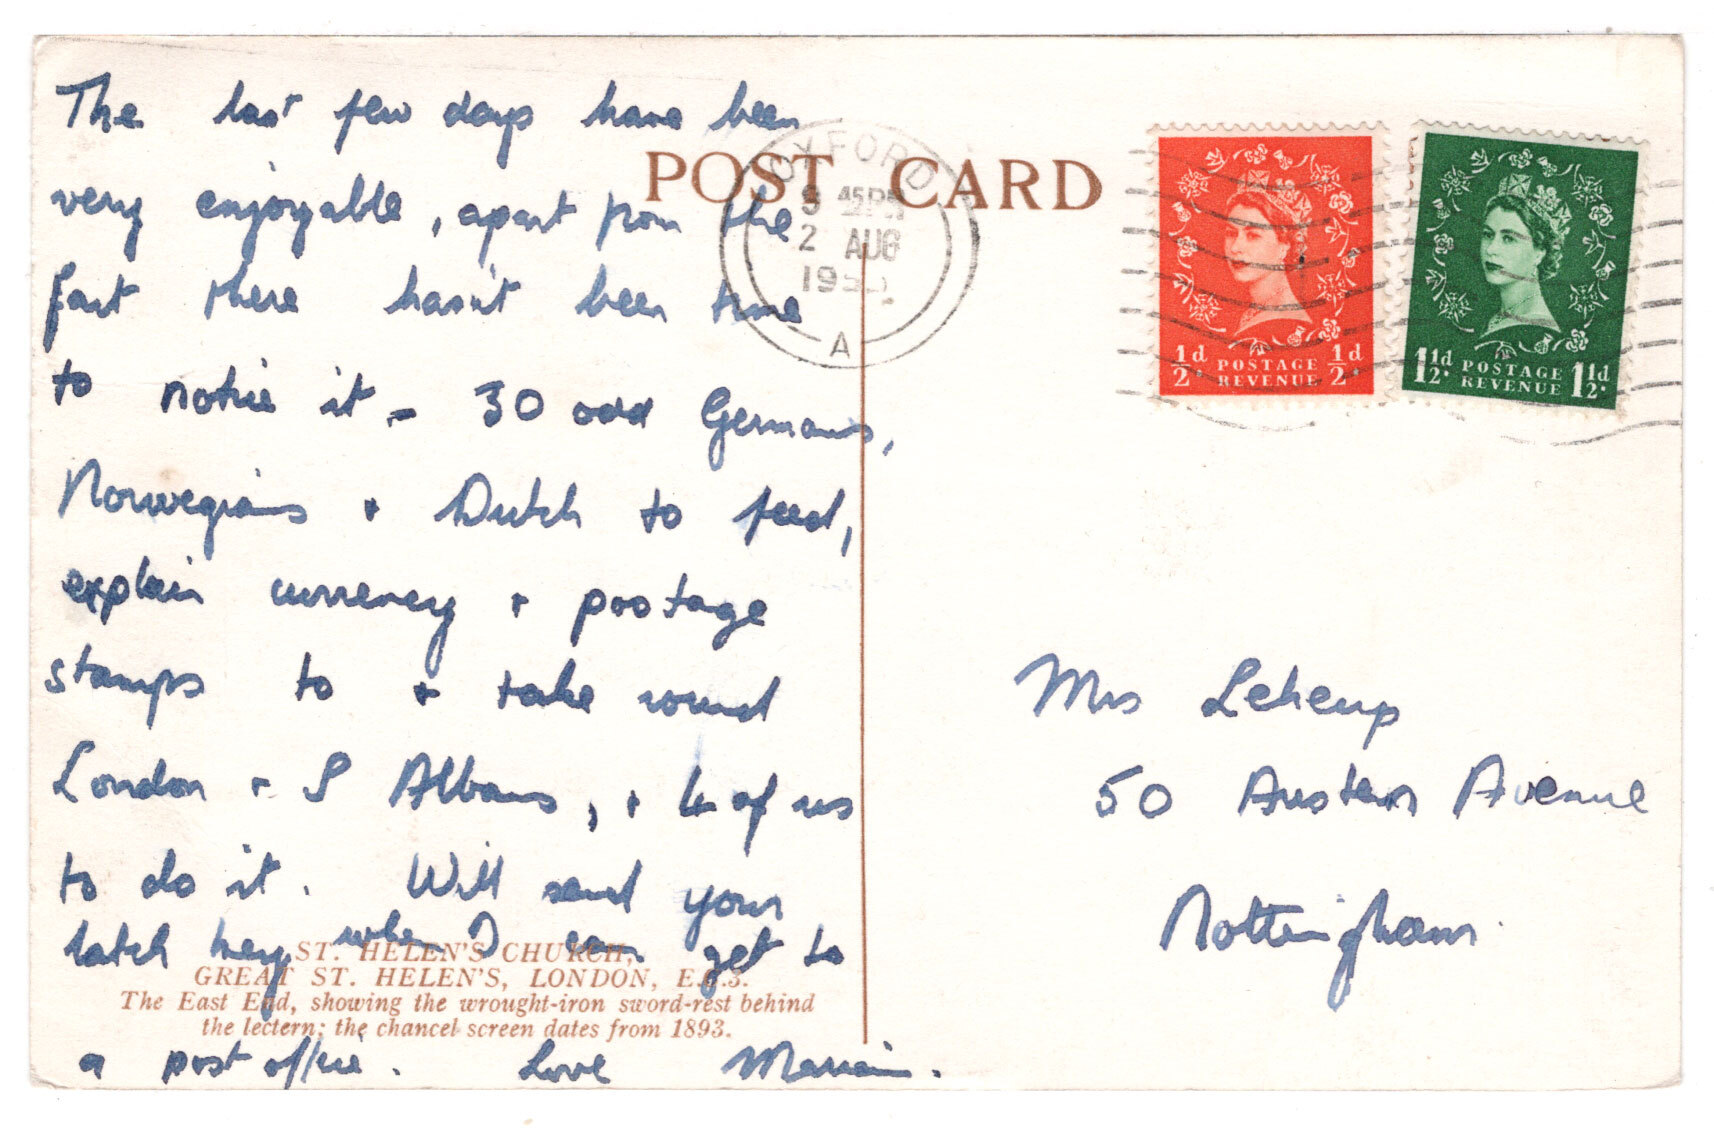 The last few days have been
very enjoyable, apart from the
fact there hasn't been time
to notice it - 30 odd Germans,
Norwegians + Dutch to feed,
explain currency + postage
stamps to + take round
London + S Albans, + 4 of us
to do it. Will send your
latch key when I can get to
a post office. Love Marian.
ST. HELEN'S CHURCH,
GREAT ST. HELEN'S, LONDON, E.C.3.
The East End, showing the wrought-iron sword-rest behind
the lectern; the chancel screen dates from 1893.
POST CARD
OXFORD
9 45 PM
2 AUG
A
½d. POSTAGE REVENUE ½d.
1½d. POSTAGE REVENUE 1½d.
Mrs Leheup
50 Austen Avenue
Nottingham.